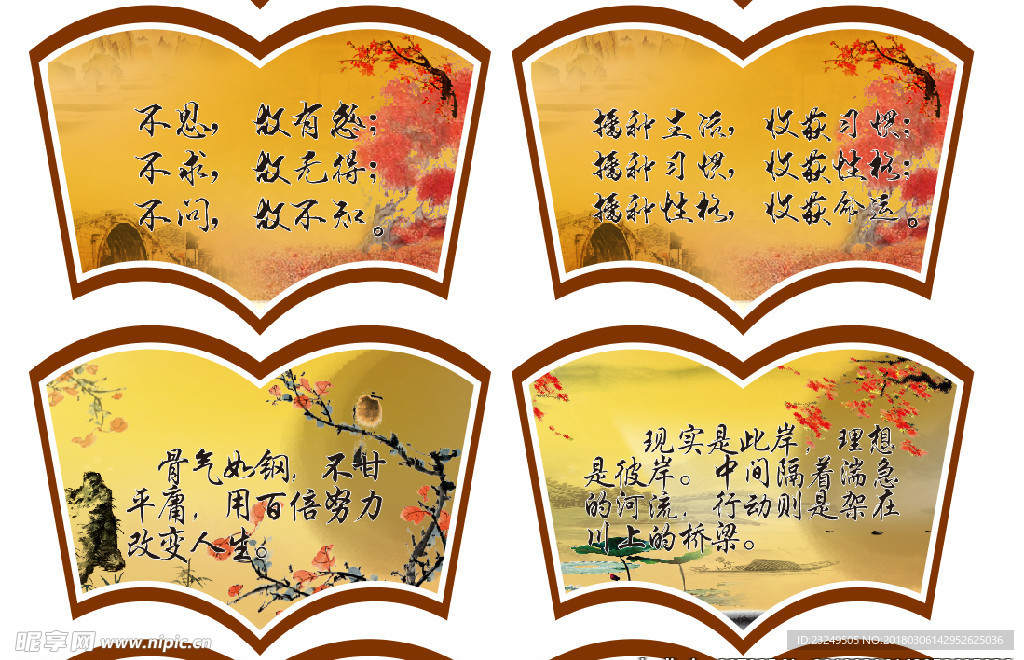 不思，故有惑；
不求，故无得；
不问，故不知。
播种主流，收获习惯；
播种习惯，收获性格；
播种性格，收获命运。
骨气如钢，不甘
平庸，用百倍努力
改变人生。
现实是此岸，理想
是彼岸。中间隔着湍急
的河流，行动则是架在
川上的桥梁。
昵享网 www.nipic.cn
ID:23249505 NO:20180306142952625036